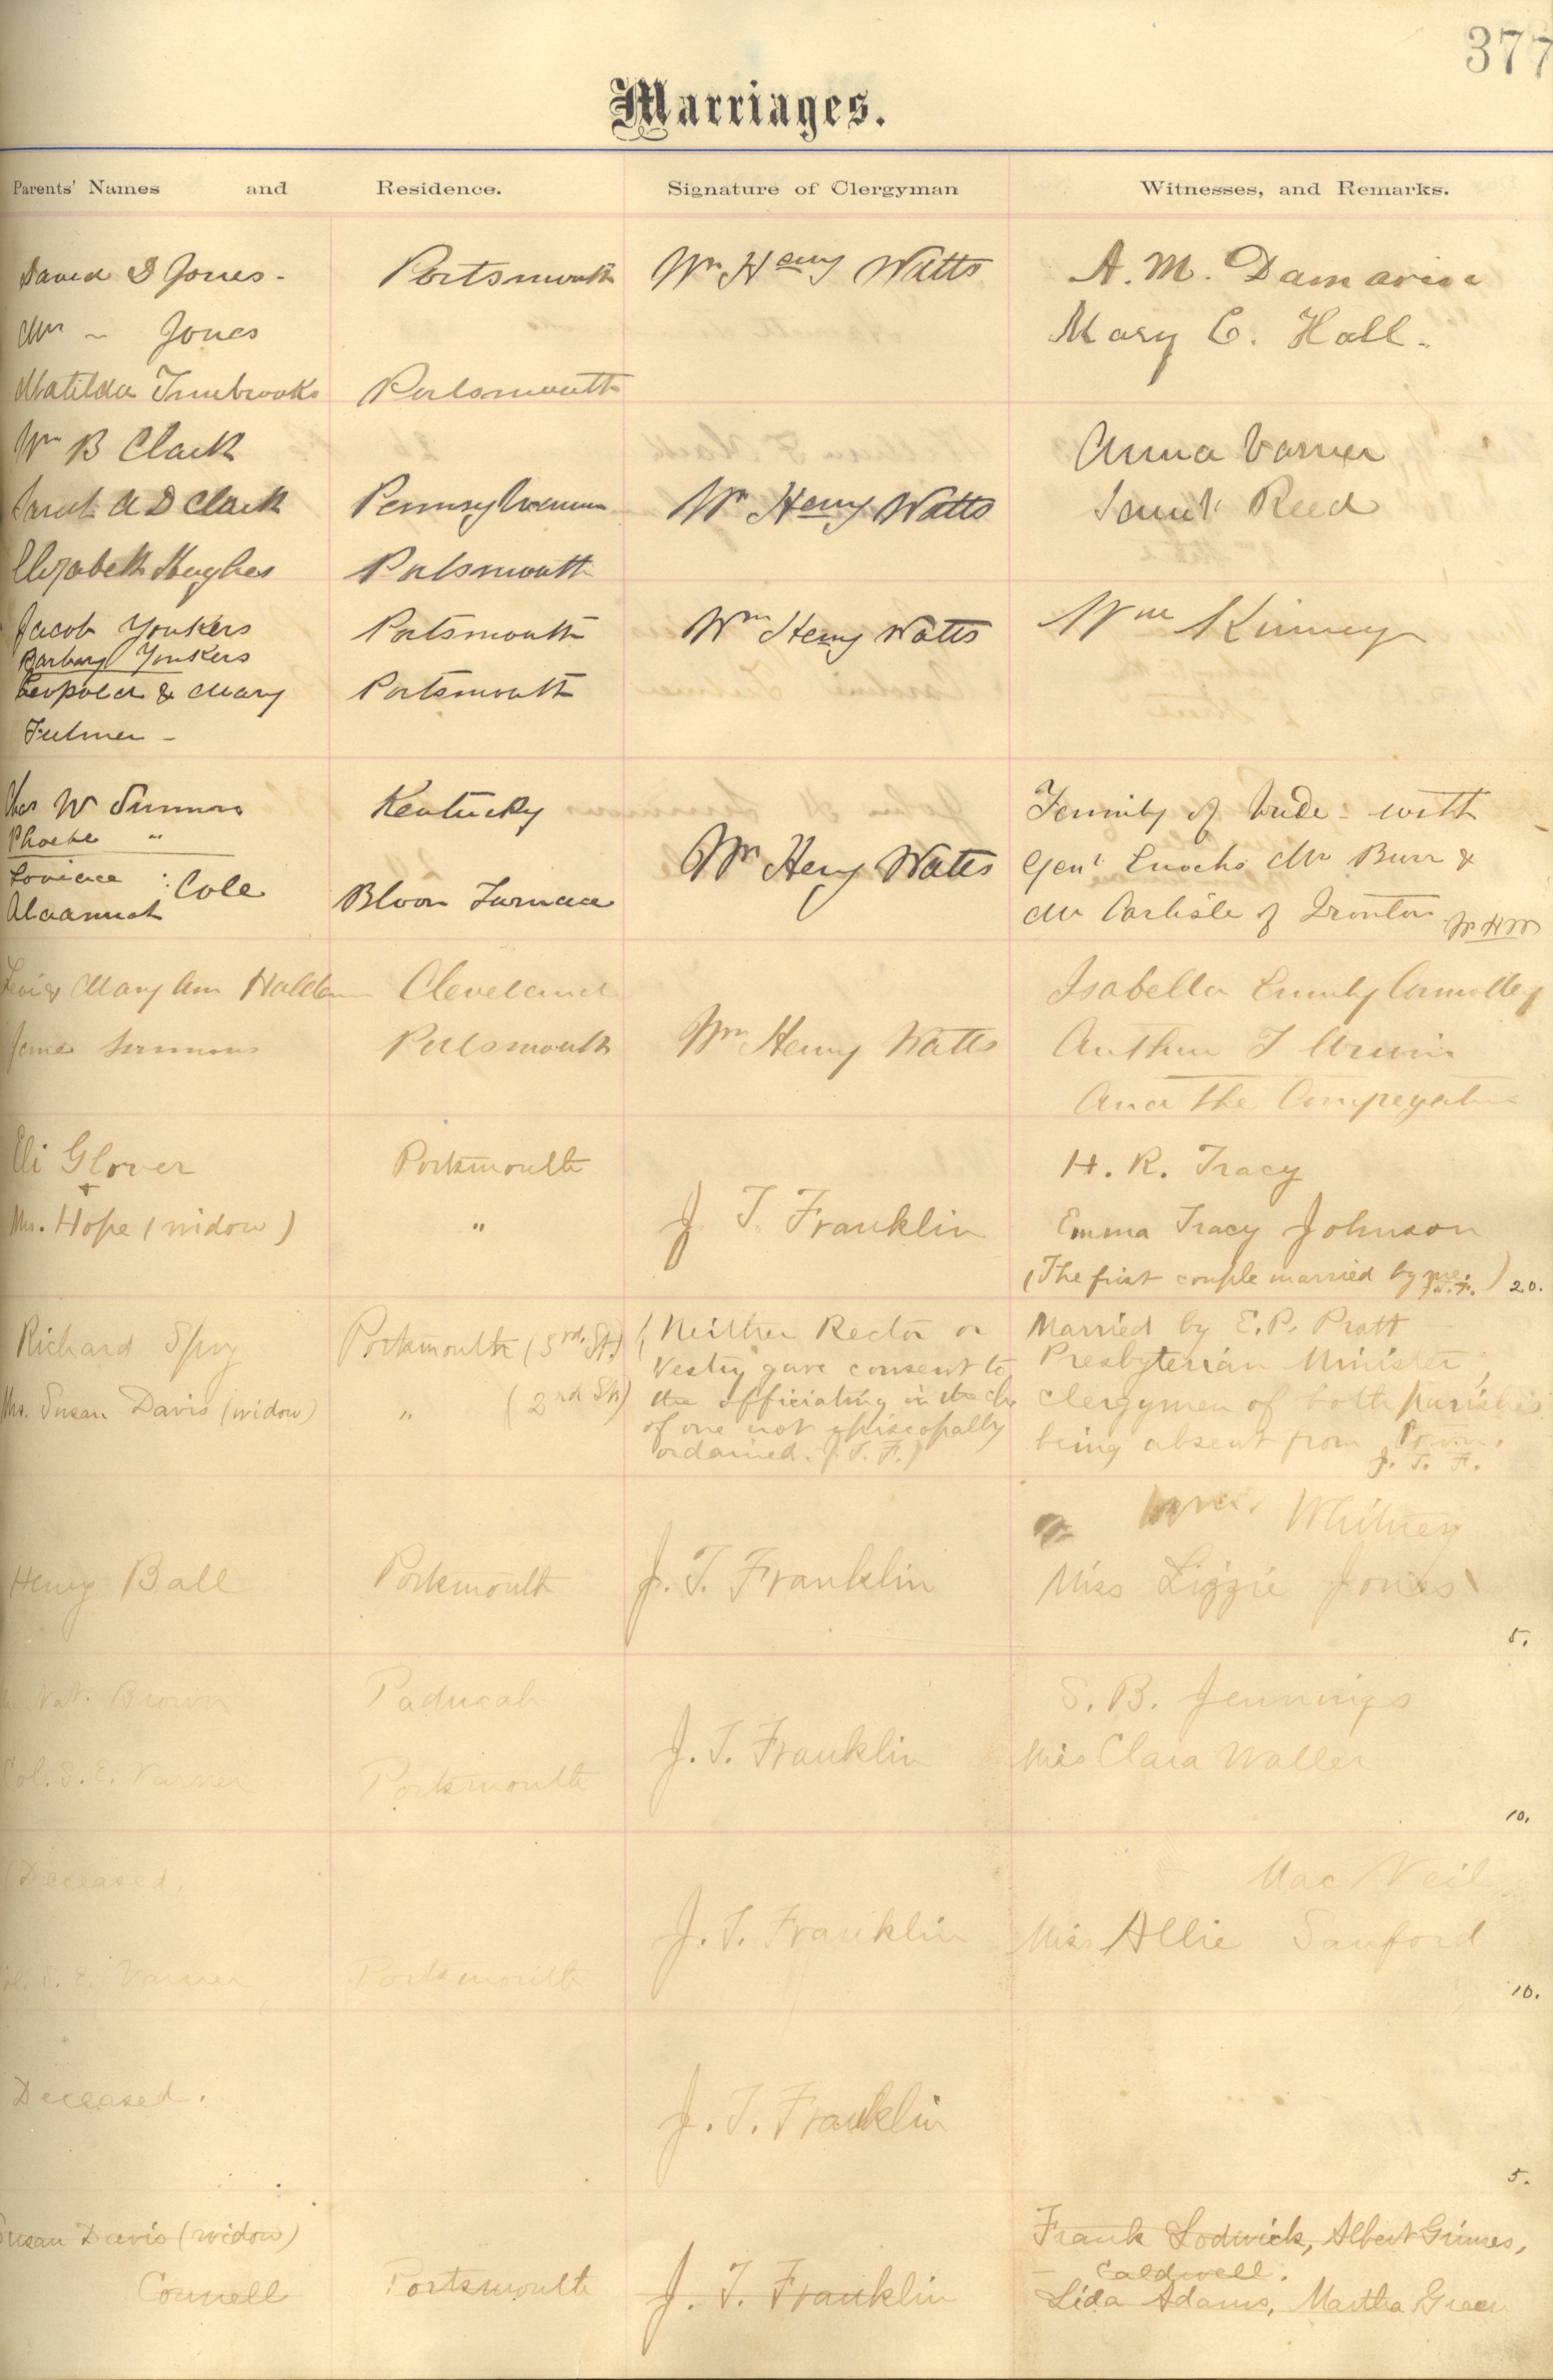 377
Marriages.
Parents' Names and Residence. Signature of Clergyman Witnesses, and Remarks.
David D Jones - Portsmouth Wm Henry Watts A. M. Damarin
Mrs ~ Jones Mary C. Hall.
Matilda Portsmouth
Wm B Clark Anna Varner
Sarah A D Clark Pennsylvania Wm Henry Watts Saml Reed
Elizabeth Hughes Portsmouth
Jacob Yonkers Portsmouth Wm Henry Watts Wm Kinney
Barbary Yonkers
Leopold & Mary Portsmouth
Fulmer -
Chas W Simmons Kentucky Family of bride - with
Phoebe "
Wm Henry Watts Genl Enochs Mr Burr &
Cole Bloom Furnace Mr Carlisle of Ironton W H W
Mary Ann Cleveland Isabella Emily Connolley
Portsmouth Wm Henry Watts Arthur T
And the Congregation
Eli Glover Portsmouth H. R. Tracy
+
Mrs. Hope (widow) " J T. Franklin Emma Tracy Johnson
(The first couple married by me. J.T.F.) 20.
Richard Spry Portsmouth (3rd. St.) (Neither Rector or Married by E. P. Pratt
Vestry gave consent to Presbyterian Minister,
Mrs. Susan Davis (widow) " (2nd St.) the officiating in the ch. clergymen of both parishes
of one not episcopally being absent from Town.
ordained. J. T. F.) J. T. F.
Whitney
Henry Ball Portsmouth J. T. Franklin Miss Lizzie Jones
5.
Nat. Brown Paducah S. B. Jennings
J. T. Franklin Miss Clara Waller
Col. S. E. Varner Portsmouth
10.
(Deceased. Mac Neil
J. T. Franklin Miss Allie Sanford
Col. S. E. Varner Portsmouth
10.
Deceased. J. T. Franklin
5.
Susan Davis (widow) Frank Lodwick, Albert Grimes,
Caldwell.
Connell Portsmouth J. T. Franklin Lida Adams, Martha Green